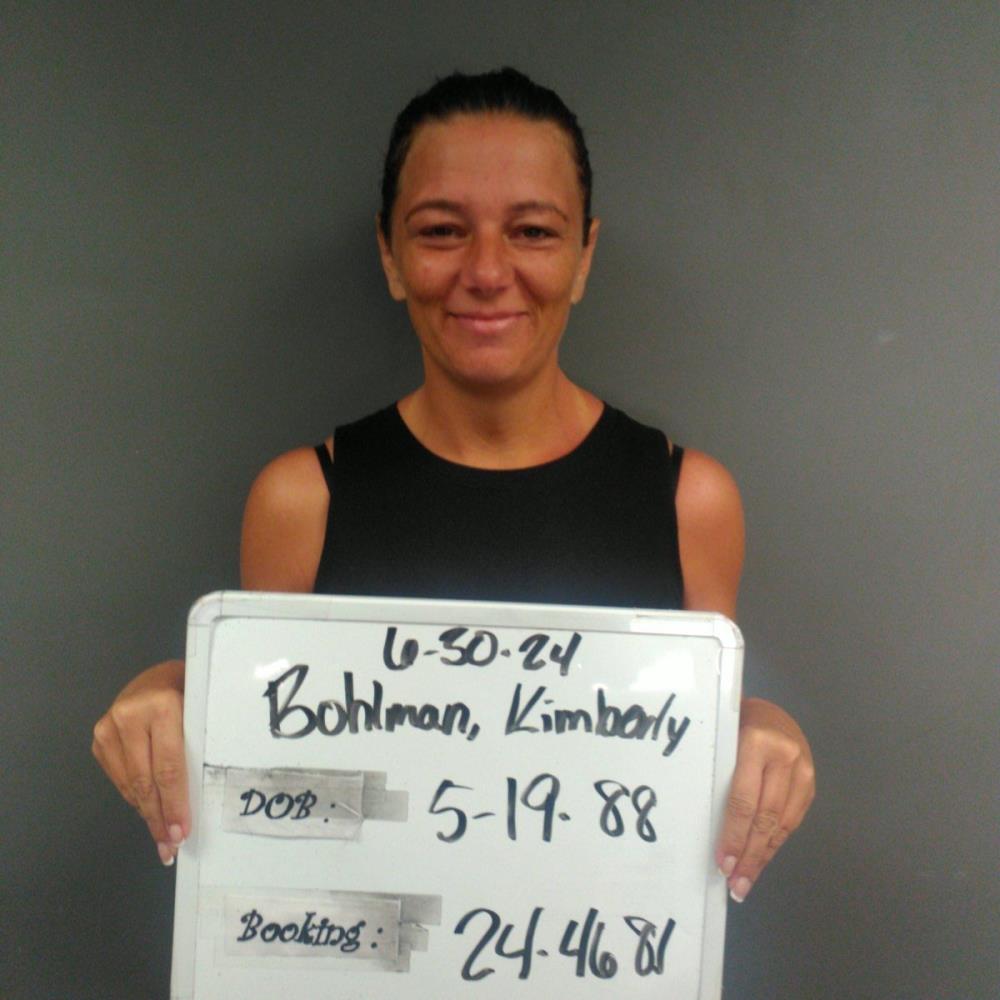 6-30-24
Bohlman, Kimberly
DOB: 5-19-88
Booking: 24-4681